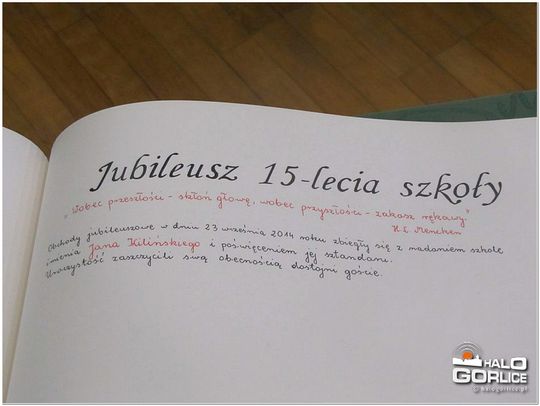 Jubileusz 15-lecia szkoły
"Wobec przeszłości - skłoń głowę, wobec przyszłości - zakasz rękawy."
H.L. Mencken
Obchody jubileuszowe w dniu 23 września 2014 roku zbiegły się z nadaniem szkole
imienia Jana Kilińskiego i poświęceniem jej sztandaru.
Uroczystość zaszczycili swą obecnością dostojni goście.
HALO
GORLICE
© halogorlice.pl